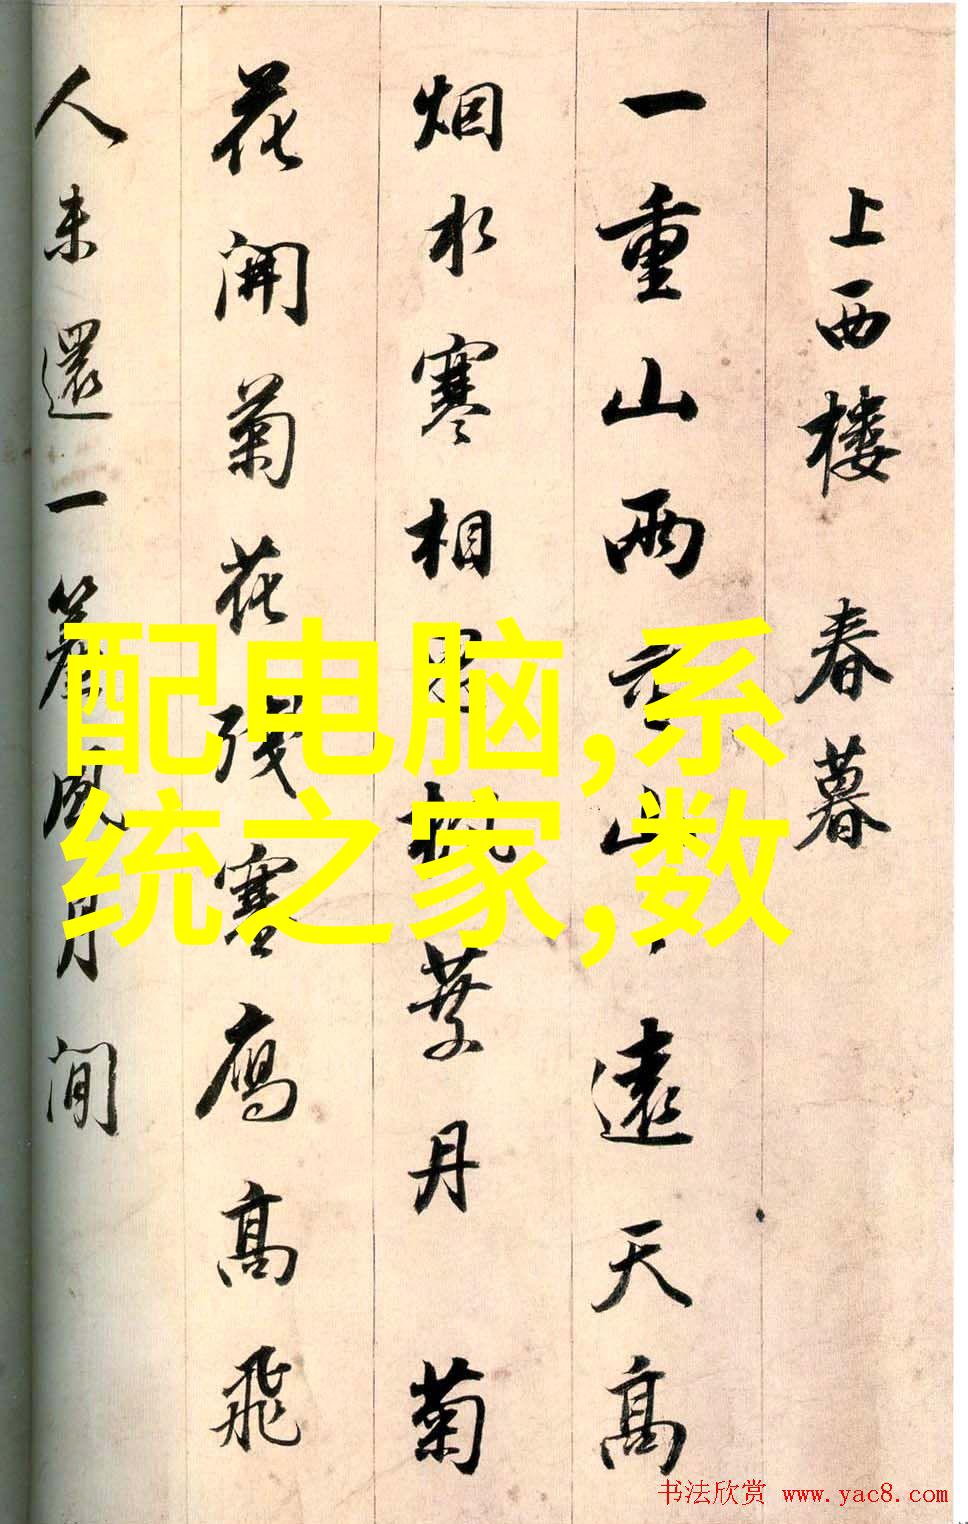 上西楼 春暮
一重山兩重山、遠天高
烟水寒相思楓葉丹 菊
花開菊花殘塞鴈高飛
人未還一簾風月閒
配电脑,系
统之家,数
书法欣赏 www.yac8.com